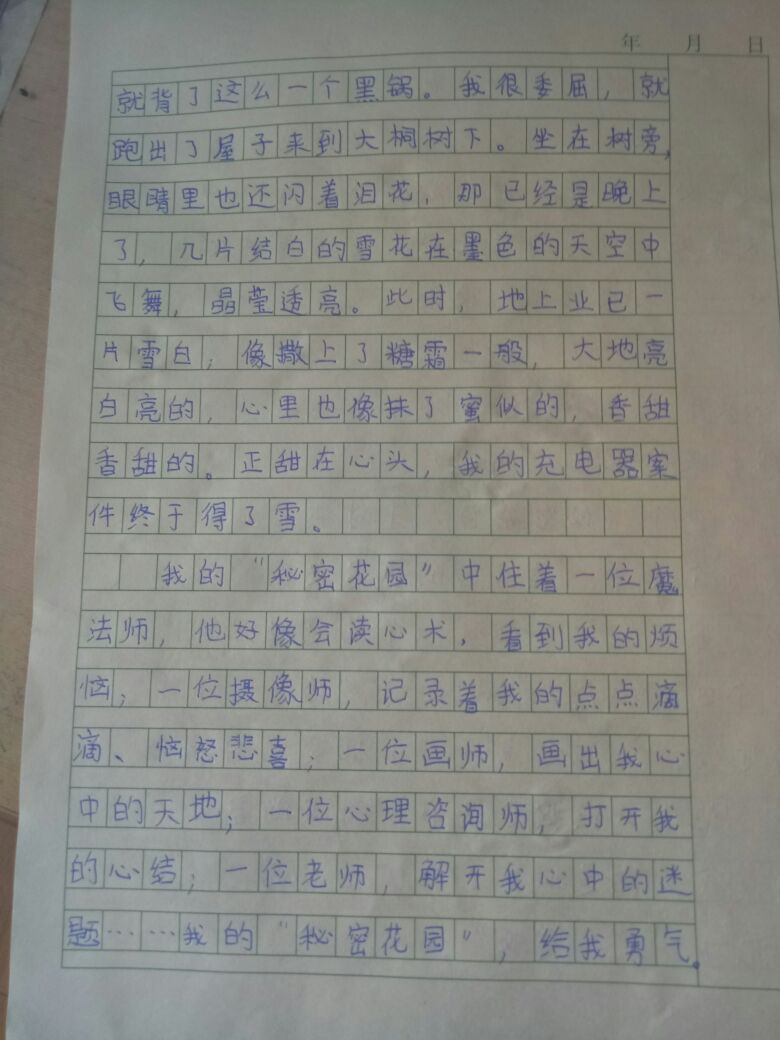 年 月 日
就背了这么一个黑锅。我很委屈，就
跑出了屋子来到大桐树下。坐在树旁，
眼睛里也还闪着泪花，那已经是晚上
了，几片结白的雪花在墨色的天空中
飞舞，晶莹透亮。此时，地上业已一
片雪白；像撒上了糖霜一般，大地亮
白亮的，心里也像抹了蜜似的，香甜
香甜的。正甜在心头，我的充电器案
件终于得了雪。
我的“秘密花园”中住着一位魔
法师，他好像会读心术，看到我的烦
恼；一位摄像师，记录着我的点点滴
滴、恼怒悲喜；一位画师，画出我心
中的天地；一位心理咨询师，打开我
的心结；一位老师，解开我心中的迷
题……我的“秘密花园”，给我勇气。